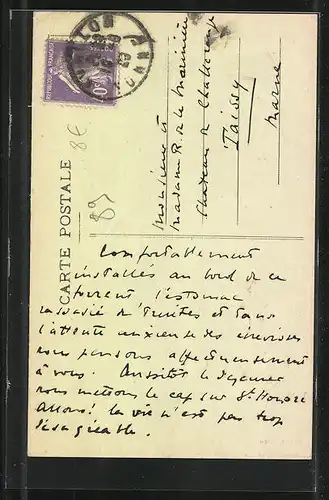 RÉPUBLIQUE FRANÇAISE
AVALLON
YONNE
CARTE POSTALE
8E
89
Monsieur &
Madame R. de la
Château de
Taissy
Marne
Confortablement
installés au bord de ce
torrent l'estomac
rassasié de truites et dans
l'attente anxieuse des écrevisses
nous pensons affectueusement
à vous. Aussitôt le déjeuner
nous mettons le cap sur St. Honoré
Allons! la vie n'est pas trop
désagréable.